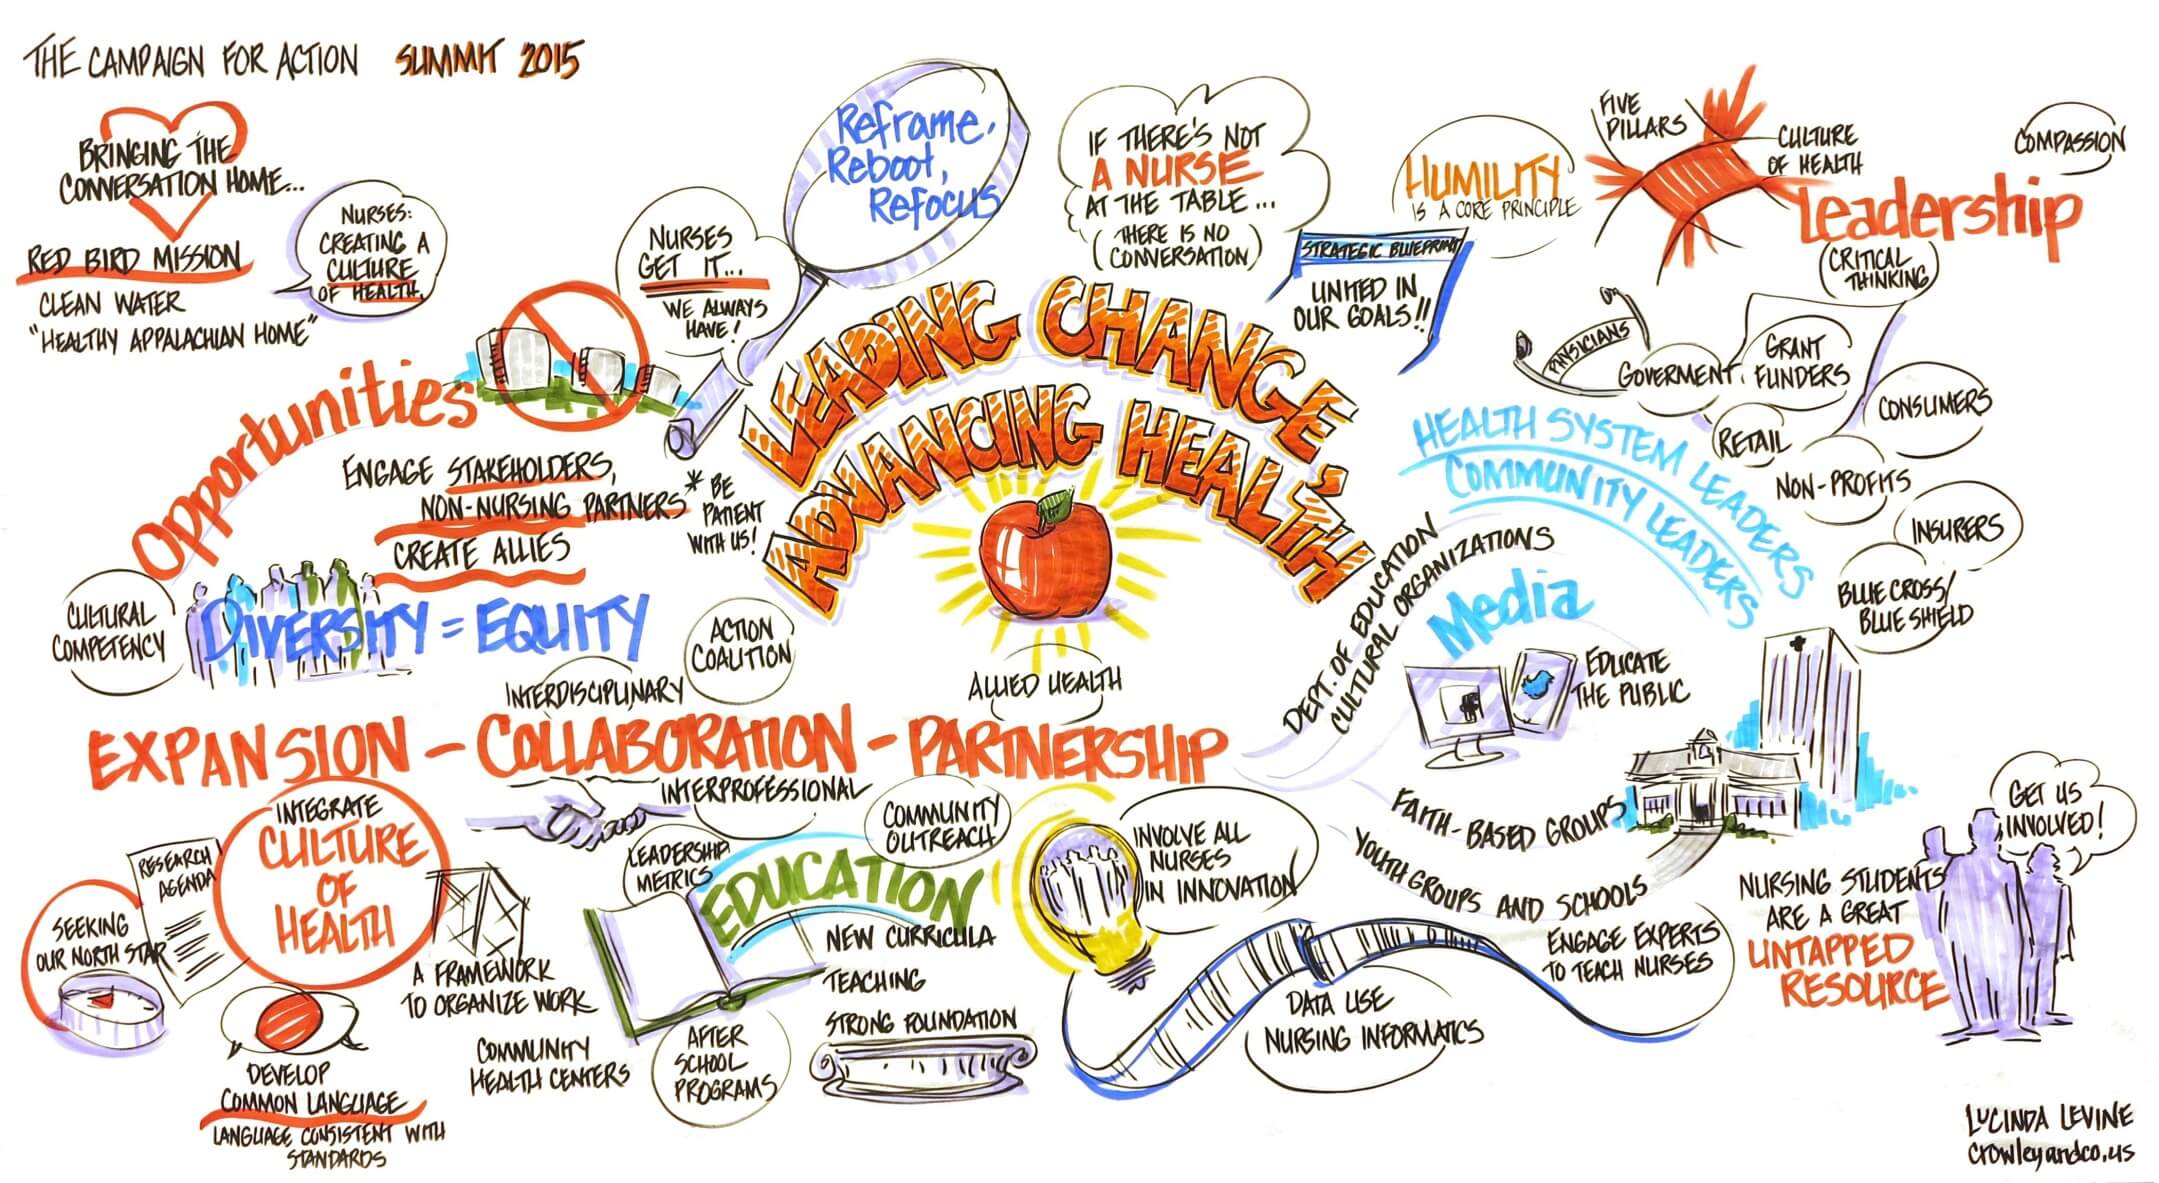 THE CAMPAIGN FOR ACTION SUMMIT 2015
BRINGING THE
CONVERSATION HOME...
RED BIRD MISSION
CLEAN WATER
"HEALTHY APPALACHIAN HOME"
NURSES:
CREATING A
CULTURE
OF HEALTH.
NURSES
GET IT...
WE ALWAYS
HAVE!
Reframe,
Reboot,
Refocus
IF THERE'S NOT
A NURSE
AT THE TABLE...
(THERE IS NO
CONVERSATION)
HUMILITY
IS A CORE PRINCIPLE
STRATEGIC BLUEPRINT
UNITED IN
OUR GOALS!!
FIVE
PILLARS
CULTURE
OF HEALTH
COMPASSION
Leadership
CRITICAL
THINKING
PHYSICIANS
GOVERMENT
GRANT
FUNDERS
CONSUMERS
RETAIL
NON-PROFITS
INSURERS
BLUE CROSS/
BLUE SHIELD
HEALTH SYSTEM LEADERS
COMMUNITY LEADERS
LEADING CHANGE,
ADVANCING HEALTH
Opportunities
ENGAGE STAKEHOLDERS,
NON-NURSING PARTNERS
CREATE ALLIES
* BE
PATIENT
WITH US!
CULTURAL
COMPETENCY
DIVERSITY = EQUITY
ACTION
COALITION
INTERDISCIPLINARY
ALLIED HEALTH
EXPANSION - COLLABORATION - PARTNERSHIP
INTERPROFESSIONAL
DEPT. OF EDUCATION
CULTURAL ORGANIZATIONS
Media
EDUCATE
THE PUBLIC
FAITH-BASED GROUPS
YOUTH GROUPS AND SCHOOLS
INTEGRATE
CULTURE
OF
HEALTH
RESEARCH
AGENDA
SEEKING
OUR NORTH STAR
A FRAMEWORK
TO ORGANIZE WORK
DEVELOP
COMMON LANGUAGE
LANGUAGE CONSISTENT WITH
STANDARDS
LEADERSHIP
METRICS
COMMUNITY
OUTREACH
EDUCATION
NEW CURRICULA
TEACHING
STRONG FOUNDATION
COMMUNITY
HEALTH CENTERS
AFTER
SCHOOL
PROGRAMS
INVOLVE ALL
NURSES
IN INNOVATION
DATA USE
NURSING INFORMATICS
ENGAGE EXPERTS
TO TEACH NURSES
NURSING STUDENTS
ARE A GREAT
UNTAPPED
RESOURCE
GET US
INVOLVED!
LUCINDA LEVINE
crowleyandco.us